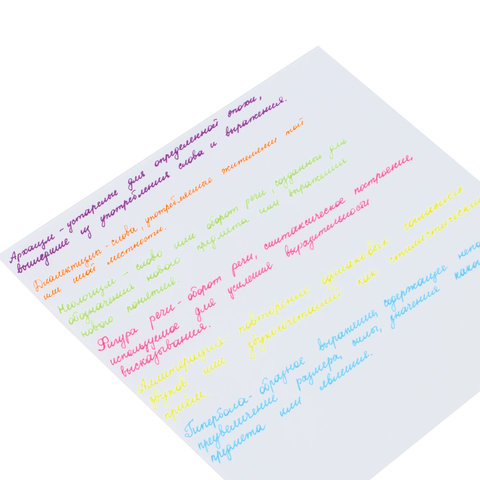 Архаизм - устарелые для определенной эпохи,
вышедшие из употребления слова и выражения.
Диалектизм - слова, употребляемые жителями той
или иной местности.
Неологизм - слово или оборот речи, созданные для
обозначения нового предмета или выражения
нового понятия.
Фигура речи - оборот речи, синтаксическое построение,
используемое для усиления выразительности
высказывания.
Аллитерация повторение одинаковых согласных
звуков или звукосочетаний как стилистический
прием.
Гипербола - образное выражение, содержащее непо
преувеличение размера, силы, значения како
предмета или явления.